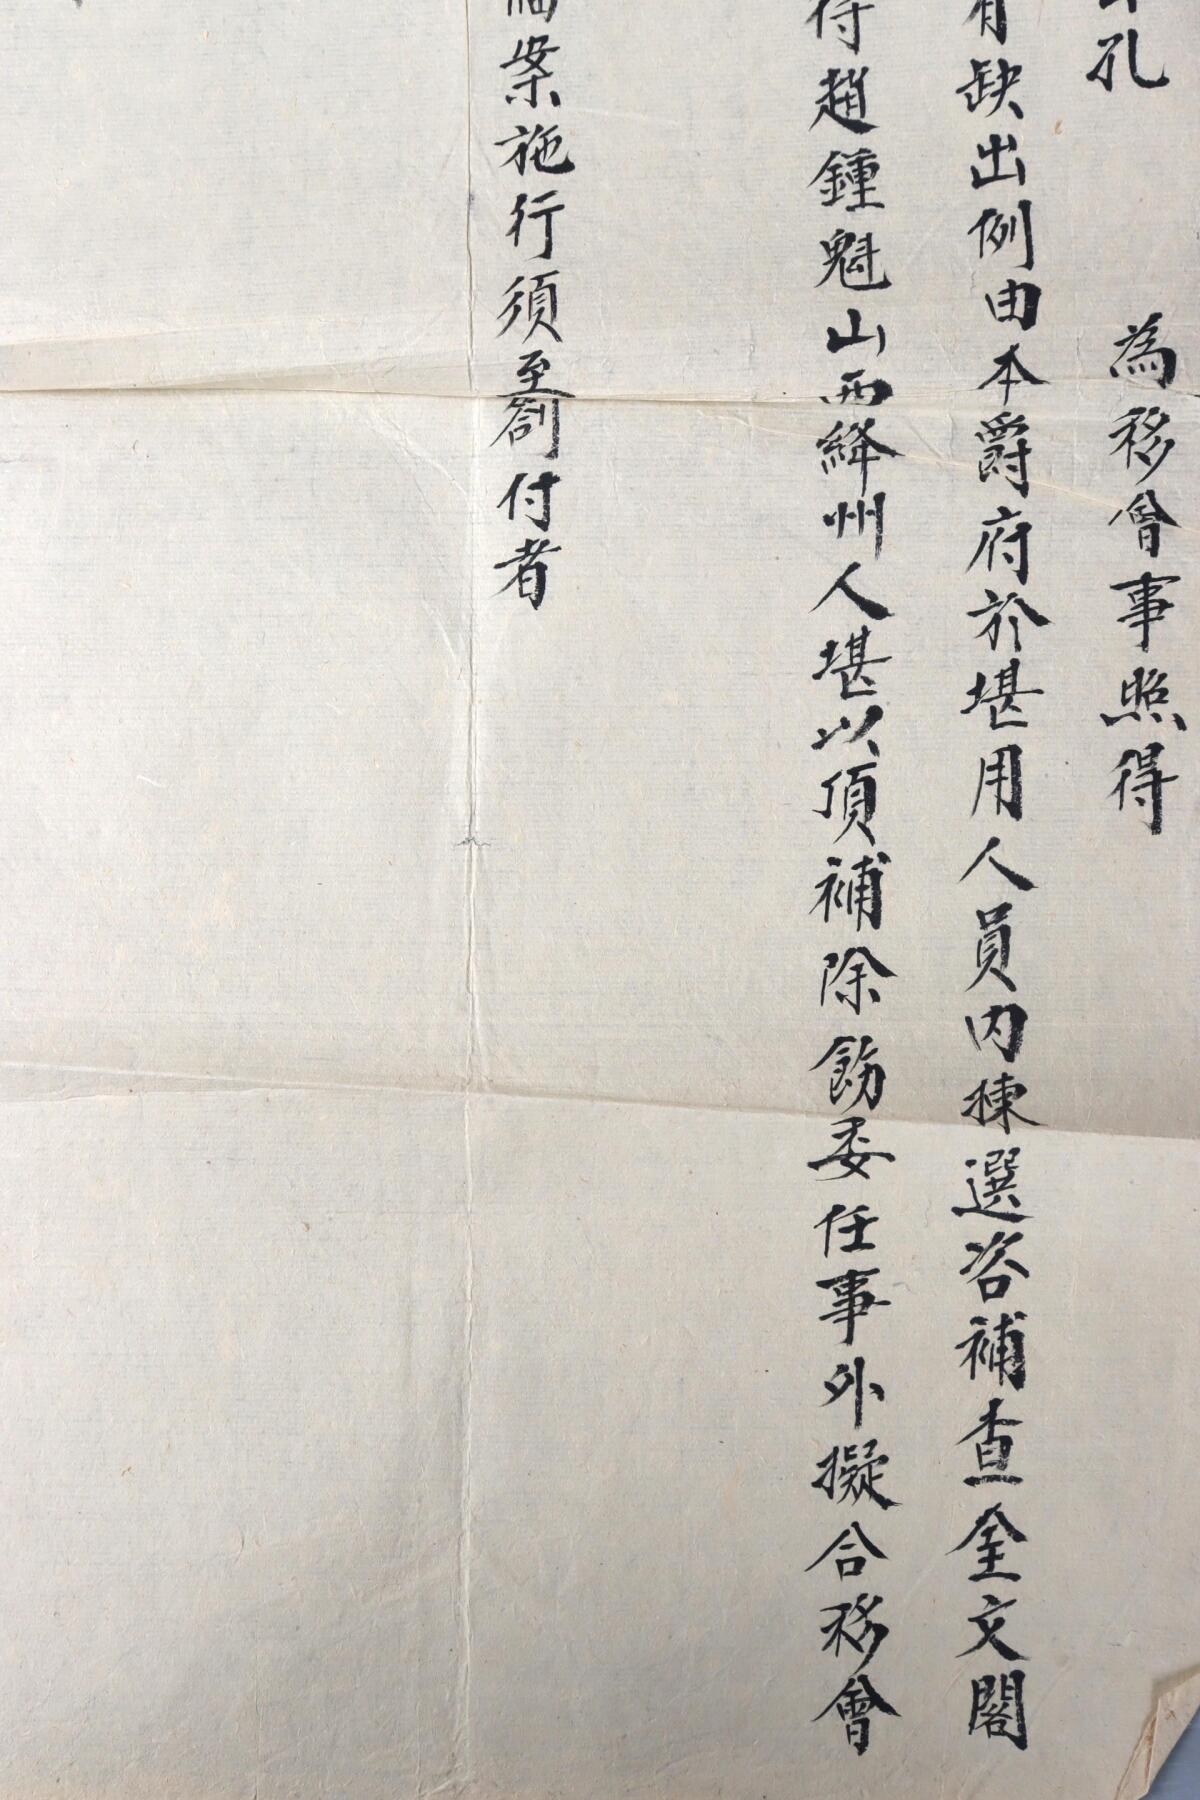 孔　為移會事照得
有缺出例由本爵府於堪用人員內揀選咨補查奎文閣
得趙鍾魁山西絳州人堪以頂補除飭委任事外擬合移會
案施行須至劄付者